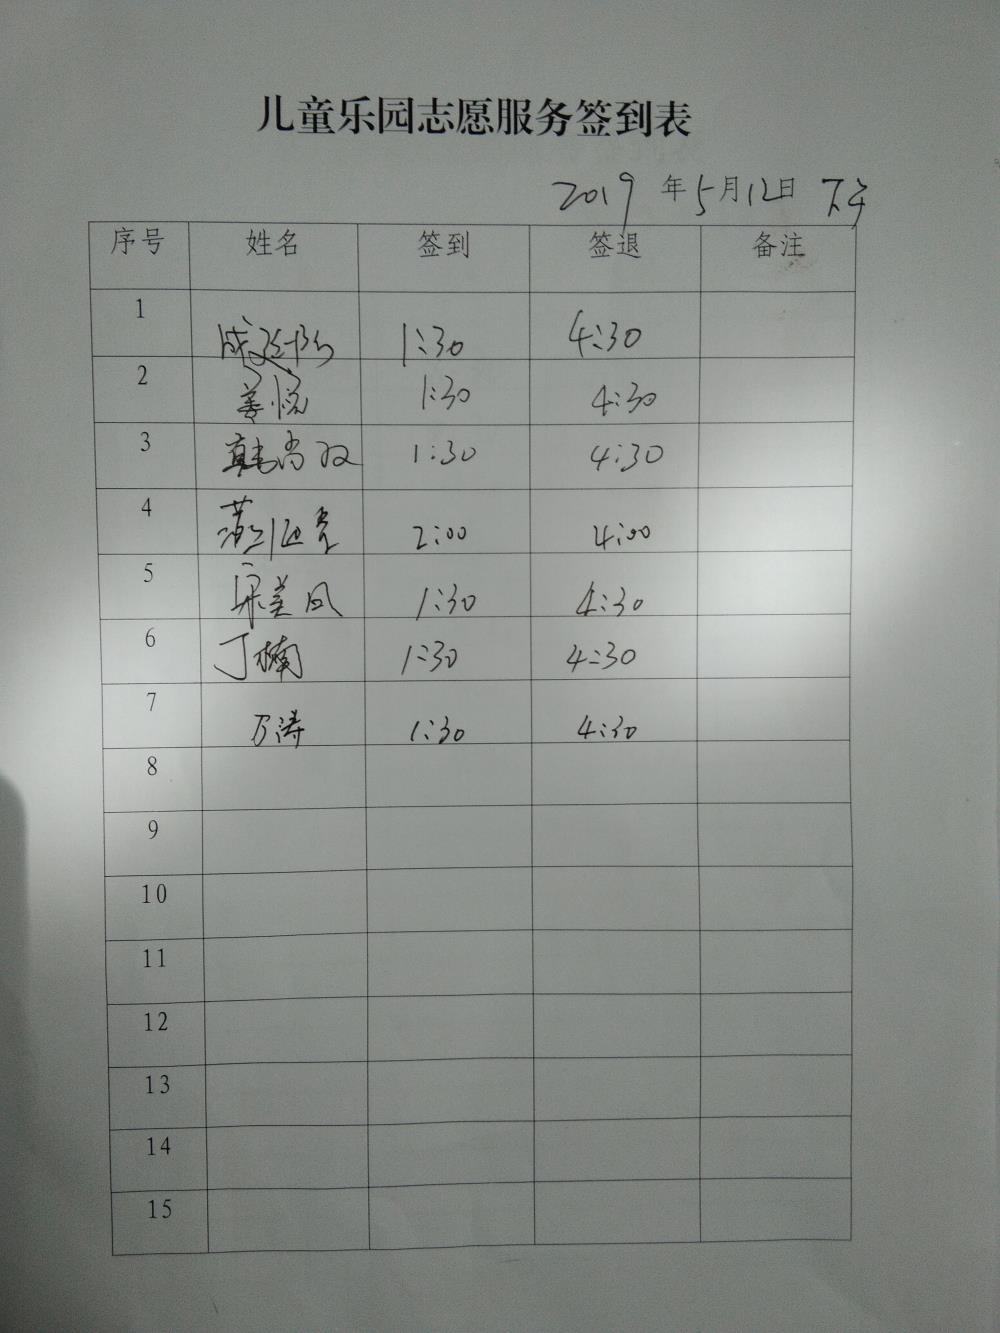 儿童乐园志愿服务签到表
2019 年 5 月 12 日 下午
序号 姓名 签到 签退 备注
1 1:30 4:30
2 姜悦 1:30 4:30
3 韩尚双 1:30 4:30
4 2:00 4:00
5 宋美凤 1:30 4:30
6 丁楠 1:30 4:30
7 万涛 1:30 4:30
8
9
10
11
12
13
14
15